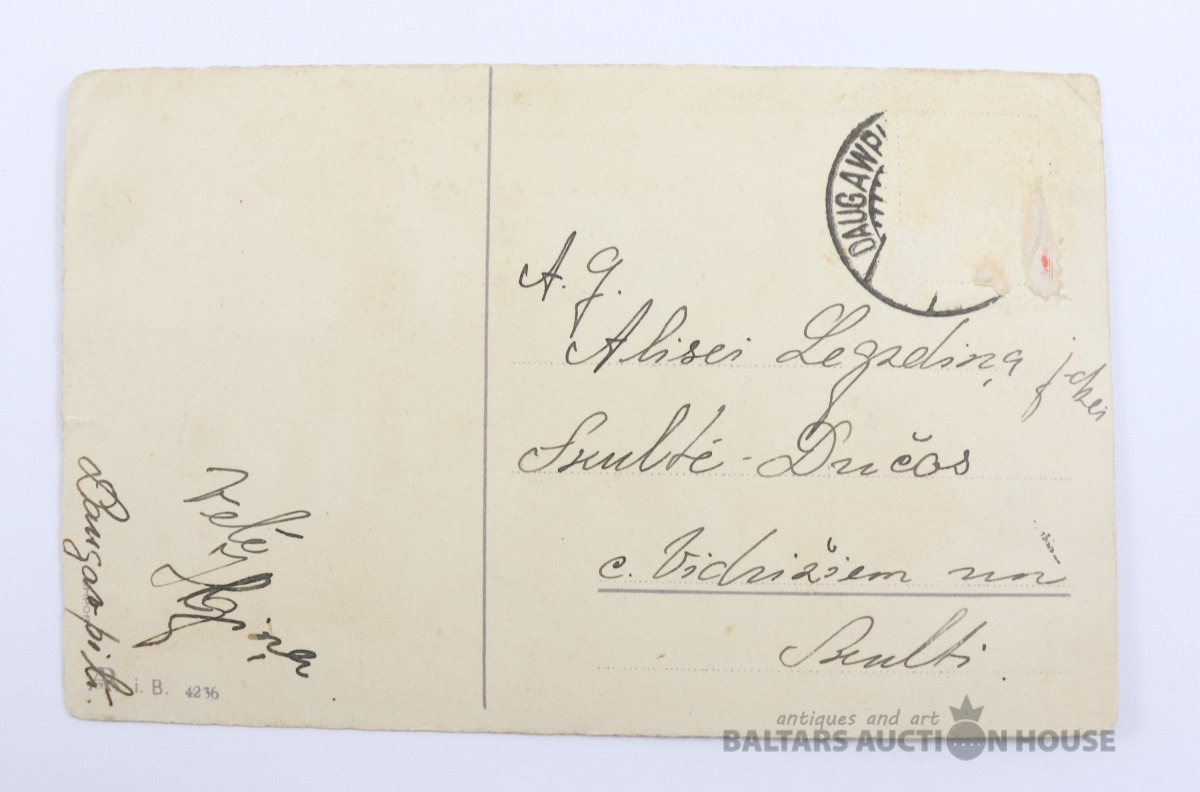 DAUGAWPI
A. g.
Alisei Legzdiņa j-dzei
Skultē - Dučos
c. Vidrižiem un
Skulti
Daugavpilī.
i. B. 4236
antiques and art
BALTARS AUCTION HOUSE